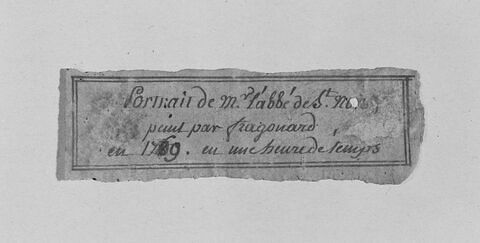 Portrait de mr. l'abbé de St.
peint par fragonard
en 1769. en une heure de temps